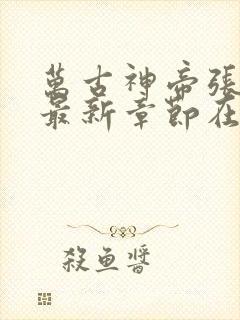 萬古神帝張
最新章節在
殺魚醬